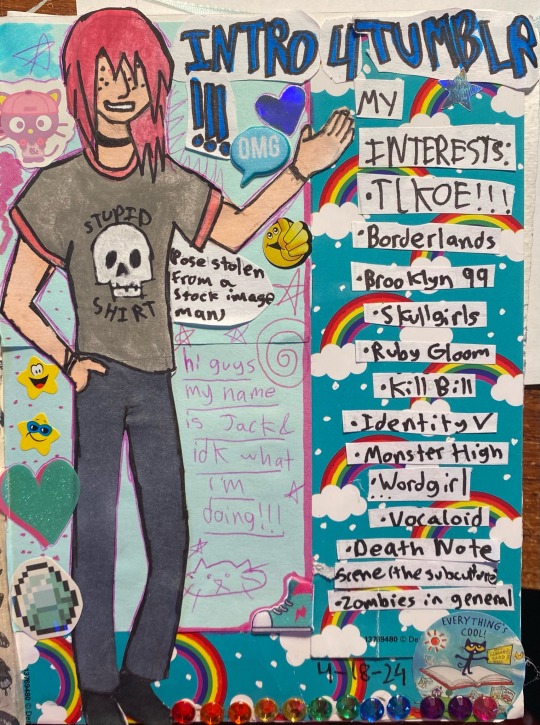 INTRO 4 TUMBLR
!!!
OMG
STUPID
SHIRT
Pose stolen
from a
stock image
man)
hi guys
my name
is Jack &
idk what
i'm
doing!!!
MY
INTERESTS:
•TLKOE!!!
•Borderlands
•Brooklyn 99
•Skullgirls
•Ruby Gloom
•Kill Bill
•Identity V
•Monster High
•Wordgirl
•Vocaloid
•Death Note
scene (the subculture)
•Zombies in general
13789480 © De
EVERYTHING'S
COOL!
4-18-24
13789480 © De